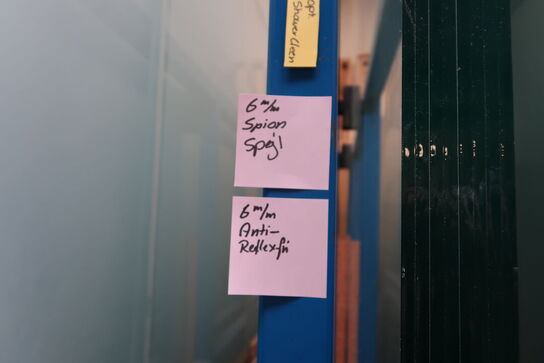 opt.
ShowerClean
6 m/m
Spion
Spejl
6 m/m
Anti-
Reflex-fri